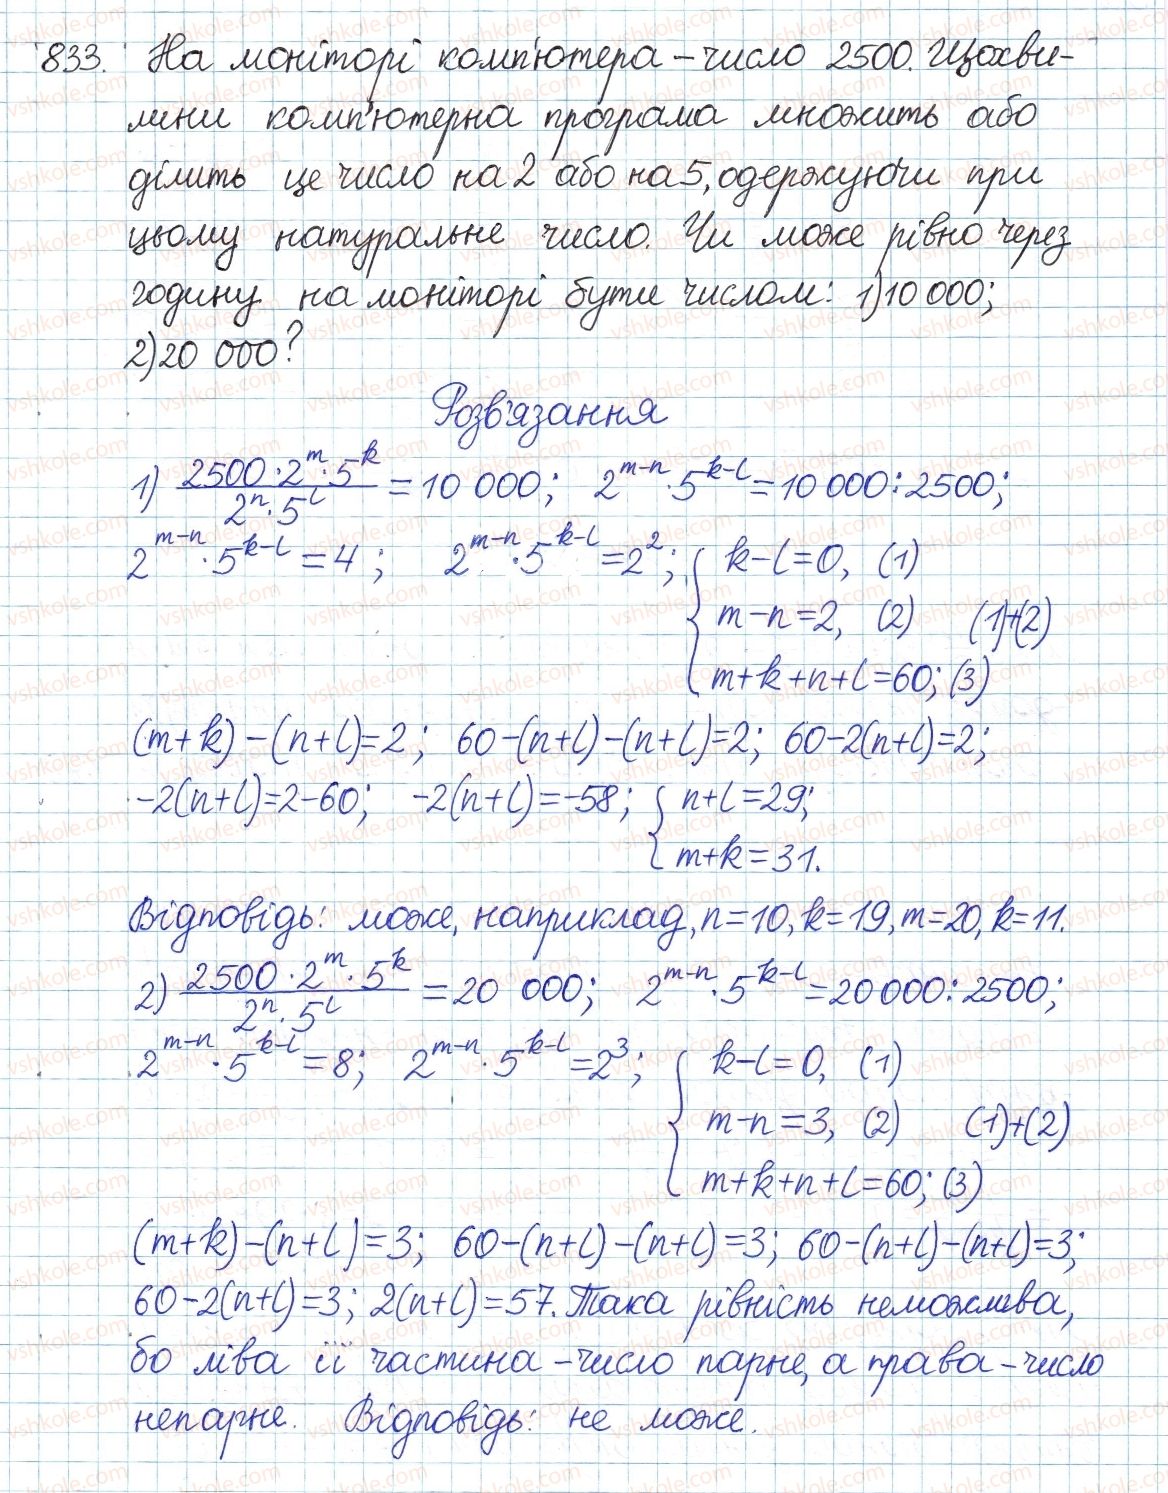 833. На моніторі комп'ютера – число 2500. Щохви-
лини комп'ютерна програма множить або
ділить це число на 2 або на 5, одержуючи при
цьому натуральне число. Чи може рівно через
годину на моніторі бути числом: 1) 10 000;
2) 20 000?
Розв'язання
1) (2500 · 2^m · 5^k)/(2^n · 5^l) = 10 000; 2^(m-n) · 5^(k-l) = 10 000 : 2500;
2^(m-n) · 5^(k-l) = 4; 2^(m-n) · 5^(k-l) = 2^2; { k-l=0, (1)
m-n=2, (2) (1)+(2)
m+k+n+l=60; (3)
(m+k)-(n+l)=2; 60-(n+l)-(n+l)=2; 60-2(n+l)=2;
-2(n+l)=2-60; -2(n+l)=-58; { n+l=29;
m+k=31.
Відповідь: може, наприклад, n=10, k=19, m=20, k=11.
2) (2500 · 2^m · 5^k)/(2^n · 5^l) = 20 000; 2^(m-n) · 5^(k-l) = 20 000 : 2500;
2^(m-n) · 5^(k-l) = 8; 2^(m-n) · 5^(k-l) = 2^3; { k-l=0, (1)
m-n=3, (2) (1)+(2)
m+k+n+l=60; (3)
(m+k)-(n+l)=3; 60-(n+l)-(n+l)=3; 60-(n+l)-(n+l)=3;
60-2(n+l)=3; 2(n+l)=57. Така рівність неможлива,
бо ліва її частина – число парне, а права – число
непарне. Відповідь: не може.